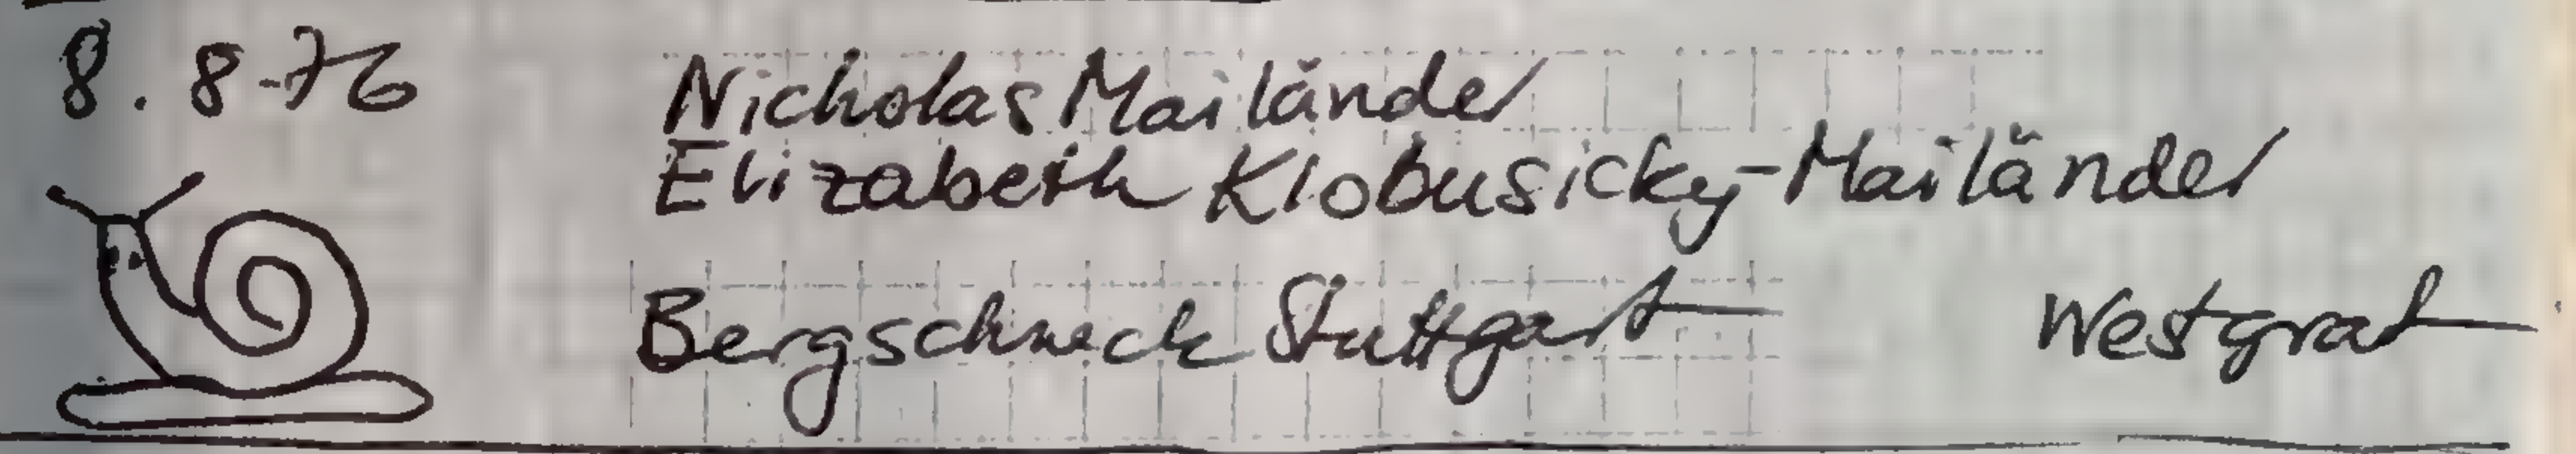 8. 8-76 Nicholas Mailänder
Elizabeth Klobusicky-Mailänder
Bergschneck Stuttgart Westgrat